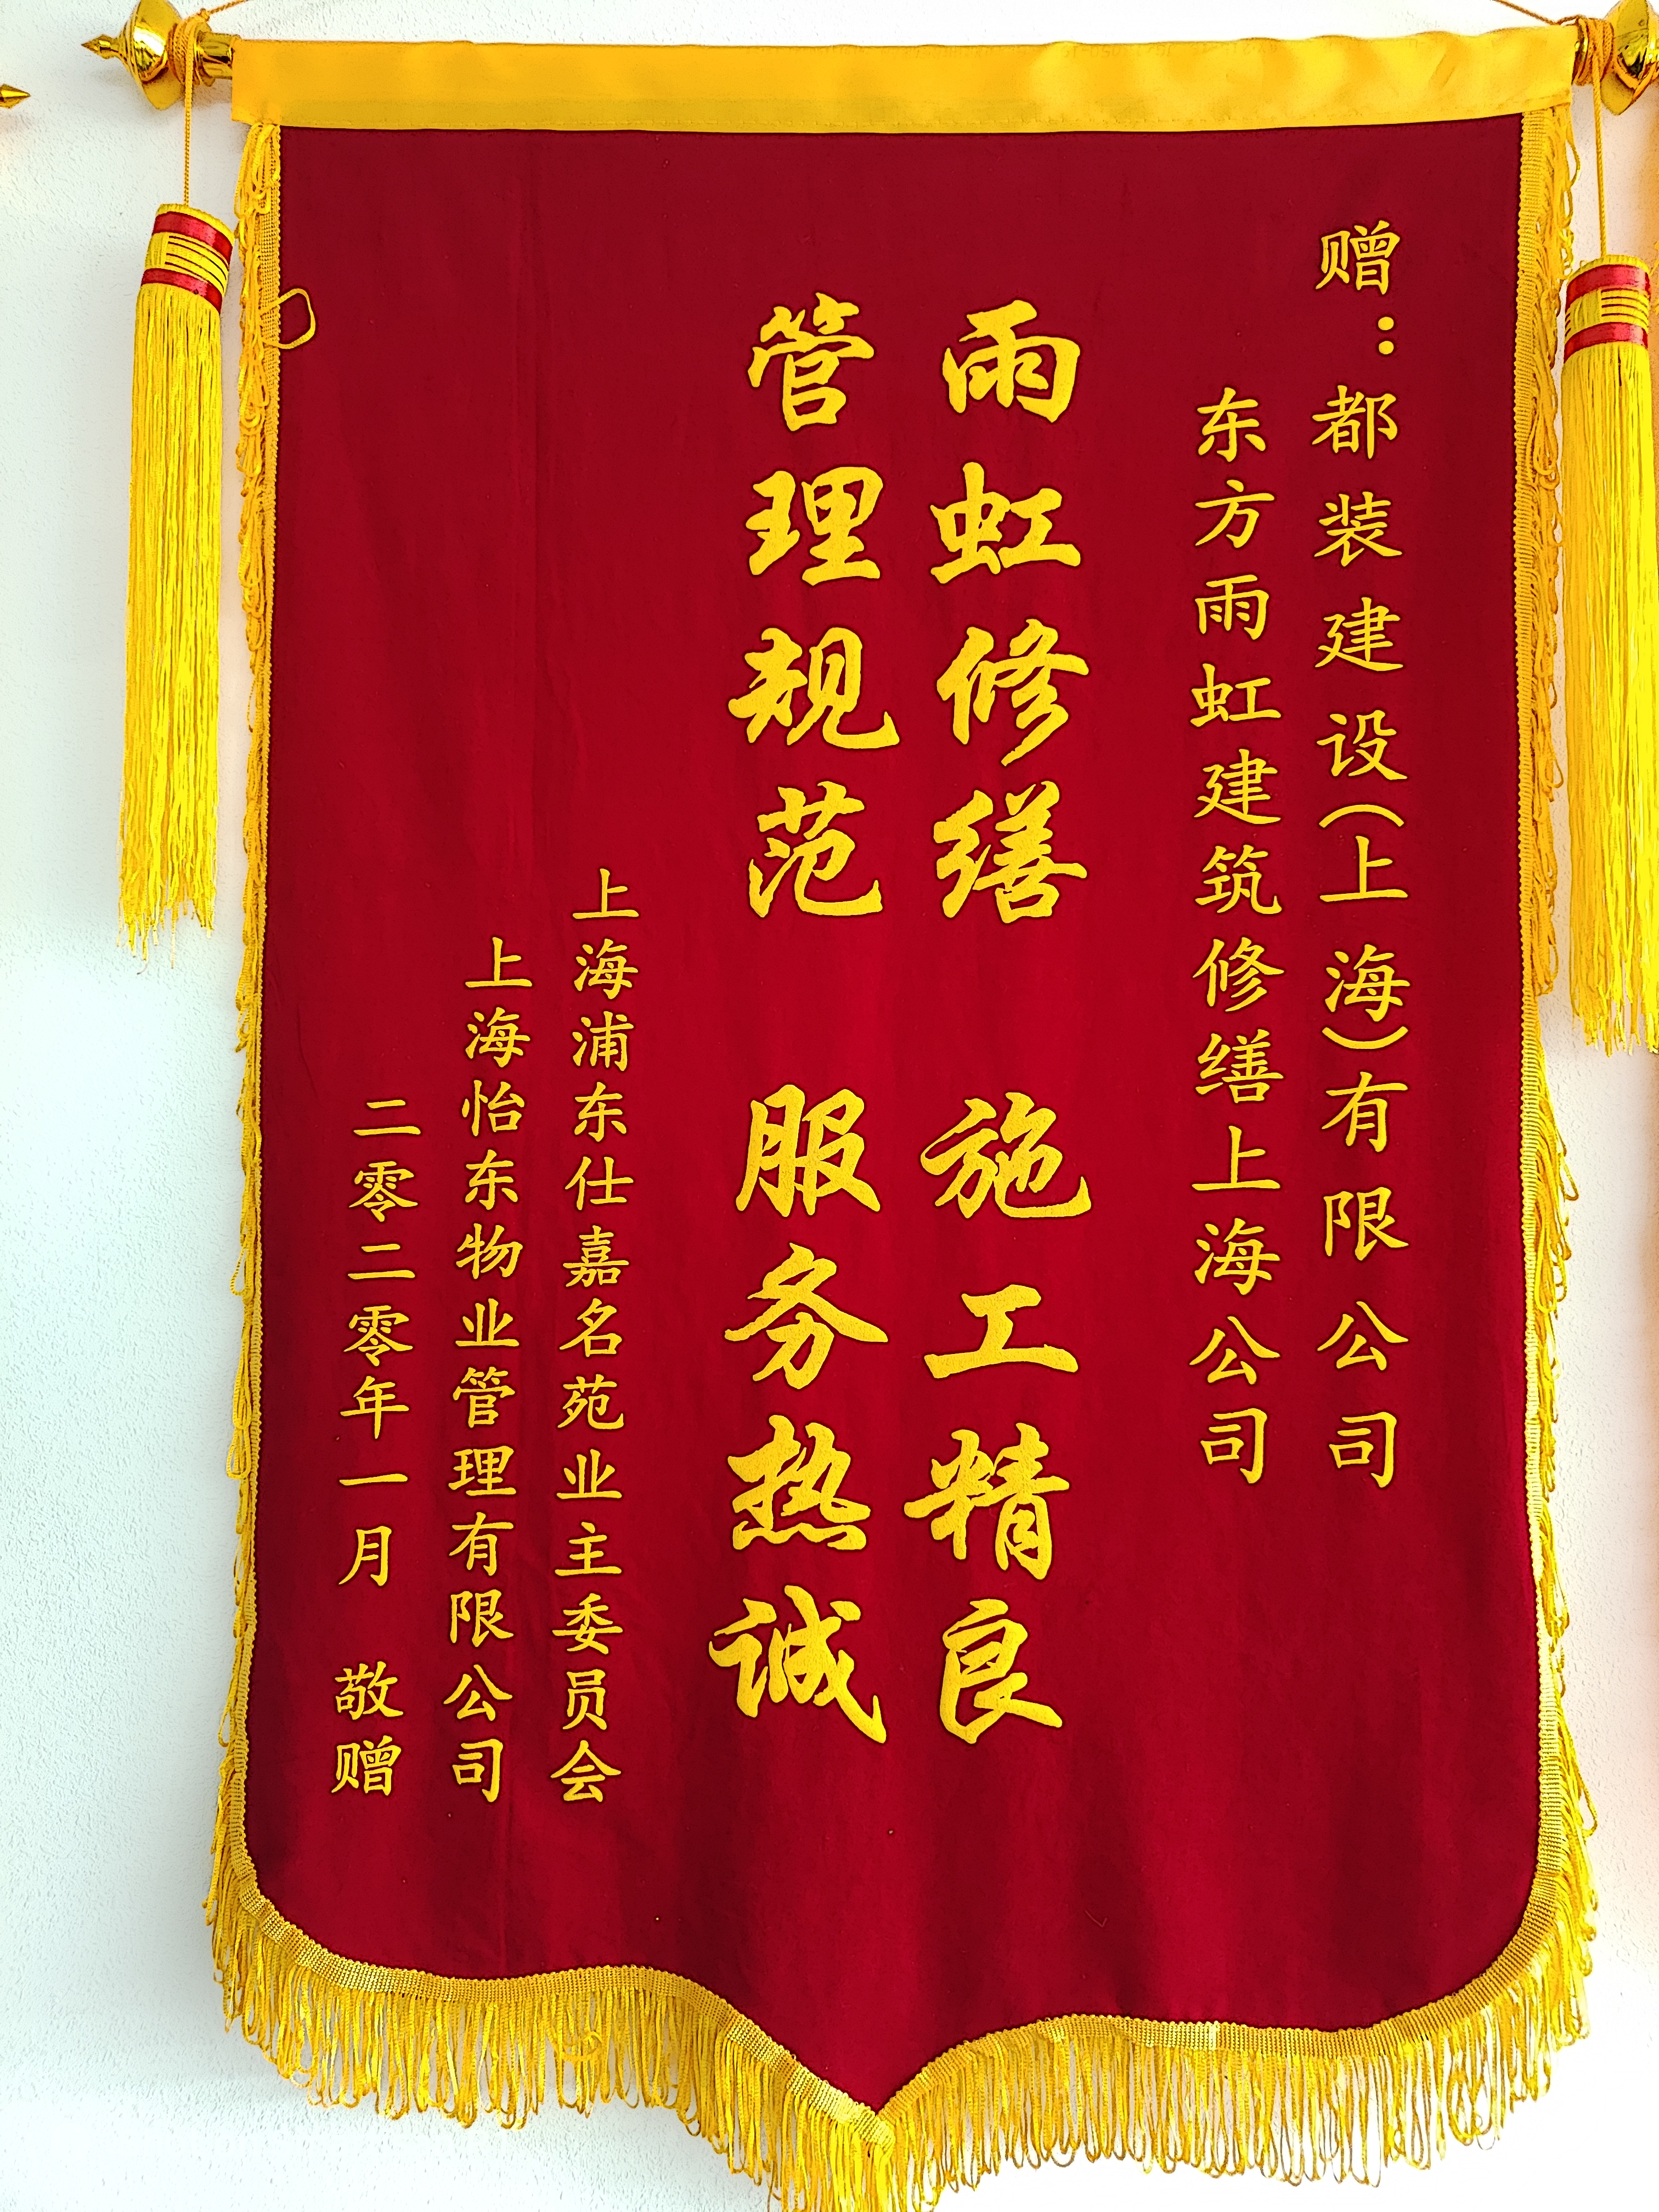 赠：都装建设(上海)有限公司
东方雨虹建筑修缮上海公司
雨虹修缮 施工精良
管理规范 服务热诚
上海浦东仕嘉名苑业主委员会
上海怡东物业管理有限公司
二零二零年一月 敬赠